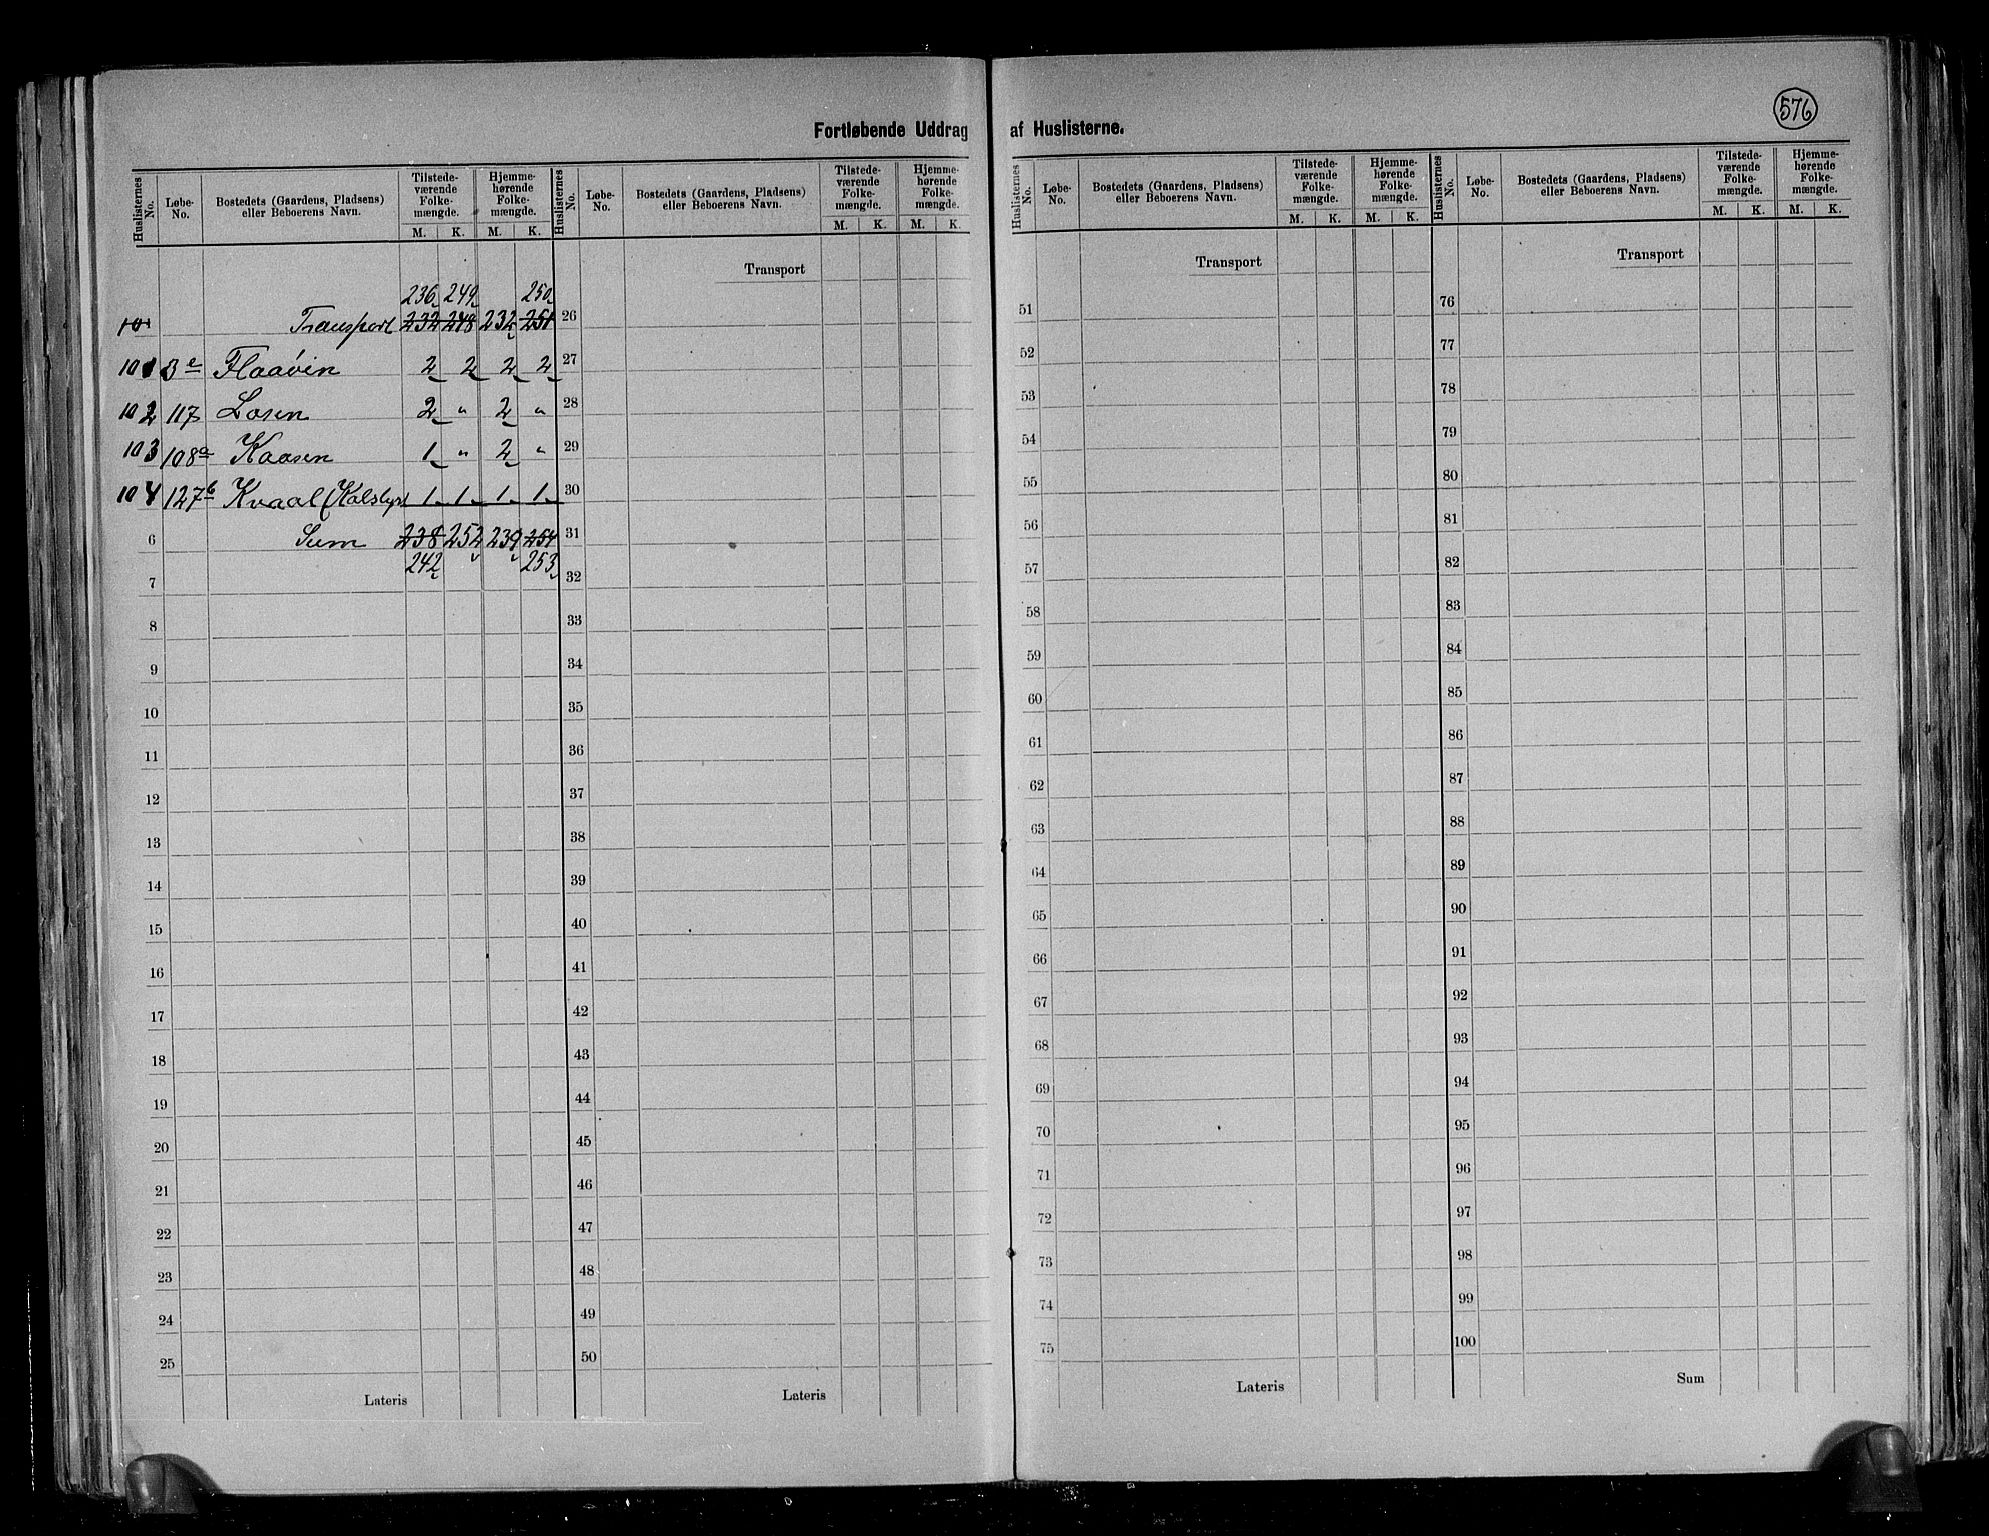 576
Fortløbende Uddrag af Huslisterne.
Huslisternes No. Løbe-No. Bostedets (Gaardens, Pladsens) eller Beboerens Navn. Tilstede-værende Folke-mængde. M. K. Hjemme-hørende Folke-mængde. M. K.
Huslisternes No. Løbe-No. Bostedets (Gaardens, Pladsens) eller Beboerens Navn. Tilstede-værende Folke-mængde. M. K. Hjemme-hørende Folke-mængde. M. K.
Huslisternes No. Løbe-No. Bostedets (Gaardens, Pladsens) eller Beboerens Navn. Tilstede-værende Folke-mængde. M. K. Hjemme-hørende Folke-mængde. M. K.
Huslisternes No. Løbe-No. Bostedets (Gaardens, Pladsens) eller Beboerens Navn. Tilstede-værende Folke-mængde. M. K. Hjemme-hørende Folke-mængde. M. K.
236 249 250
101 Transport 232 248 232 251
101 3e Flaaøien 2 2 2 2
102 117 Losen 2 " 2 "
103 108a Kaasen 1 " 2 "
104 127b Kvaal (Kalstyr) 1 1 1 1
6 Sum 238 252 239 254
242 253
7
8
9
10
11
12
13
14
15
16
17
18
19
20
21
22
23
24
25
Lateris
Transport
26
27
28
29
30
31
32
33
34
35
36
37
38
39
40
41
42
43
44
45
46
47
48
49
50
Lateris
Transport
51
52
53
54
55
56
57
58
59
60
61
62
63
64
65
66
67
68
69
70
71
72
73
74
75
Lateris
Transport
76
77
78
79
80
81
82
83
84
85
86
87
88
89
90
91
92
93
94
95
96
97
98
99
100
Sum